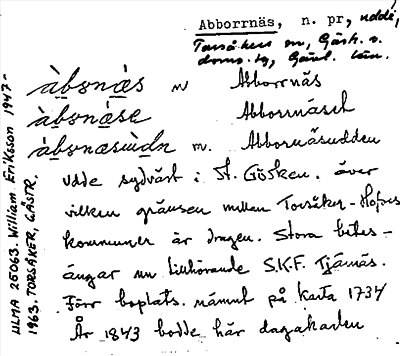 Abborrnäs, n. pr, udde,
Torsåkers sn, Gästr. ö.
doms. tg, Gävl. län.
àbɔrnä̀s m Abborrnäs
àbɔrnä̀se Abborrnäset
àbɔrnæsùdn m. Abborrnäsudden
udde sydväst i St. Gösken, över
vilken gränsen mellan Torsåker-Hofors
kommuner är dragen. Stora betes-
ängar nu tillhörande S.K.F. Tjärnäs.
Förr boplats. nämnt på karta 1734
År 1843 bodde här dagakarlen
ULMA 25063. William Eriksson 1947-
1963. TORSÅKER, GÄSTR.